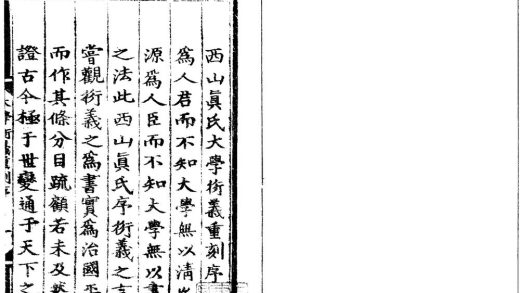 西山真氏大學衍義重刻序
為人君而不知大學無以清
源為人臣而不知大學無以
之法此西山真氏序衍義之言
嘗觀衍義之為書實為治國平
而作其條分目疏顧若未及然
證古今極于世變通于天下之